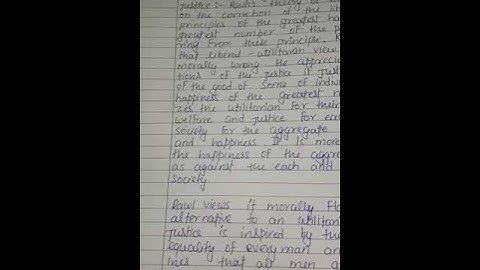 justice :- Rawl's theory of
on the correction of the lib
principles of the greatest ha
greatest number of the p
ring from these principle. R
that liberal - utilitarian view
morally wrong the apprecia
tions of the justice if Just
of the good of some of indiv
happiness of the greatest n
zes the utilitarian for their
welfare and justice for eac
society for the aggregate
and happiness It is more
the happiness of the aggre
as against the each and
society.
Rawl views if morally Fl
alternative to an utilitan
Justice is inspired by the
equality of every man an
ines that all men a